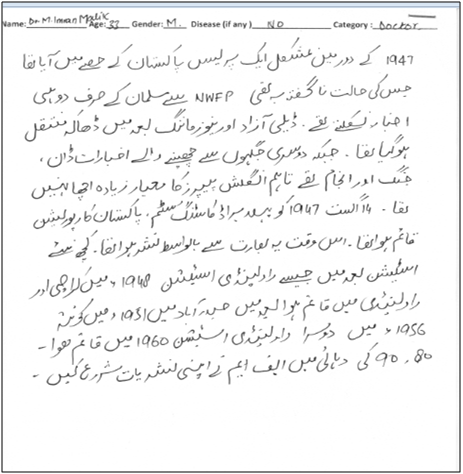 Name: Dr. M. Imran Malik Age: 33 Gender: M. Disease (if any) NO Category: Doctor
1947 کے دور میں مشکل ایک پریس پاکستان کے حصے میں آیا تھا
جس کی حالت نا گفتہ بہ تھی NWFP سے مسلمان کے صرف دو ہی
اخبار نکلتے تھے۔ ڈیلی آزاد اور نیوز مارننگ بعد میں ڈھاکہ منتقل
ہو گیا تھا۔ جبکہ دوسری جگہوں سے چھپنے والے اخبارات ڈان،
جنگ اور انجام تھے تاہم انگلش پیپرز کا معیار زیادہ اچھا نہیں
تھا۔ 14 اگست 1947 کو براڈ کاسٹنگ سسٹم۔ پاکستان کارپوریشن
قائم ہوا تھا۔ اس وقت یہ بھارت سے بالواسطہ نشر ہوا تھا۔ کچھ نئے
اسٹیشن بعد میں جیسے راولپنڈی اسٹیشن 1948ء میں کراچی اور
راولپنڈی میں قائم ہوا بعد میں حیدرآباد میں 1951ء میں کوئٹہ
1956ء میں دوسرا راولپنڈی اسٹیشن 1960 میں قائم ہوا۔
80، 90 کی دہائی میں ایف ایم نے اپنی نشریات شروع کیں۔